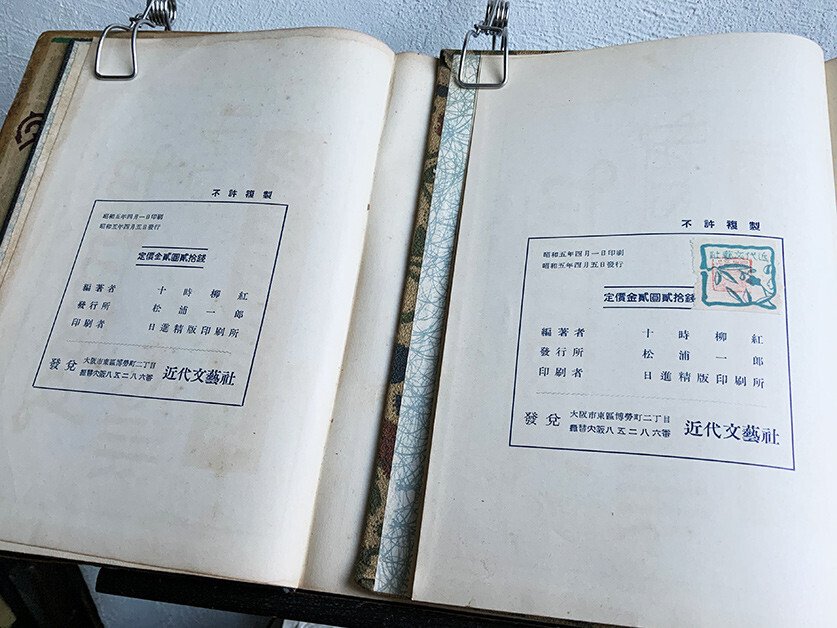 不許複製
昭和五年四月一日印刷
昭和五年四月五日發行
定價金貳圓貳拾錢
編著者 十時柳紅
發行所 松浦一郎
印刷者 日進精版印刷所
發兌 大阪市東區博勞町二丁目
振替大阪八五二八六番
近代文藝社
不許複製
昭和五年四月一日印刷
昭和五年四月五日發行
近代文藝社
定價金貳圓貳拾錢
編著者 十時柳紅
發行所 松浦一郎
印刷者 日進精版印刷所
發兌 大阪市東區博勞町二丁目
振替大阪八五二八六番
近代文藝社